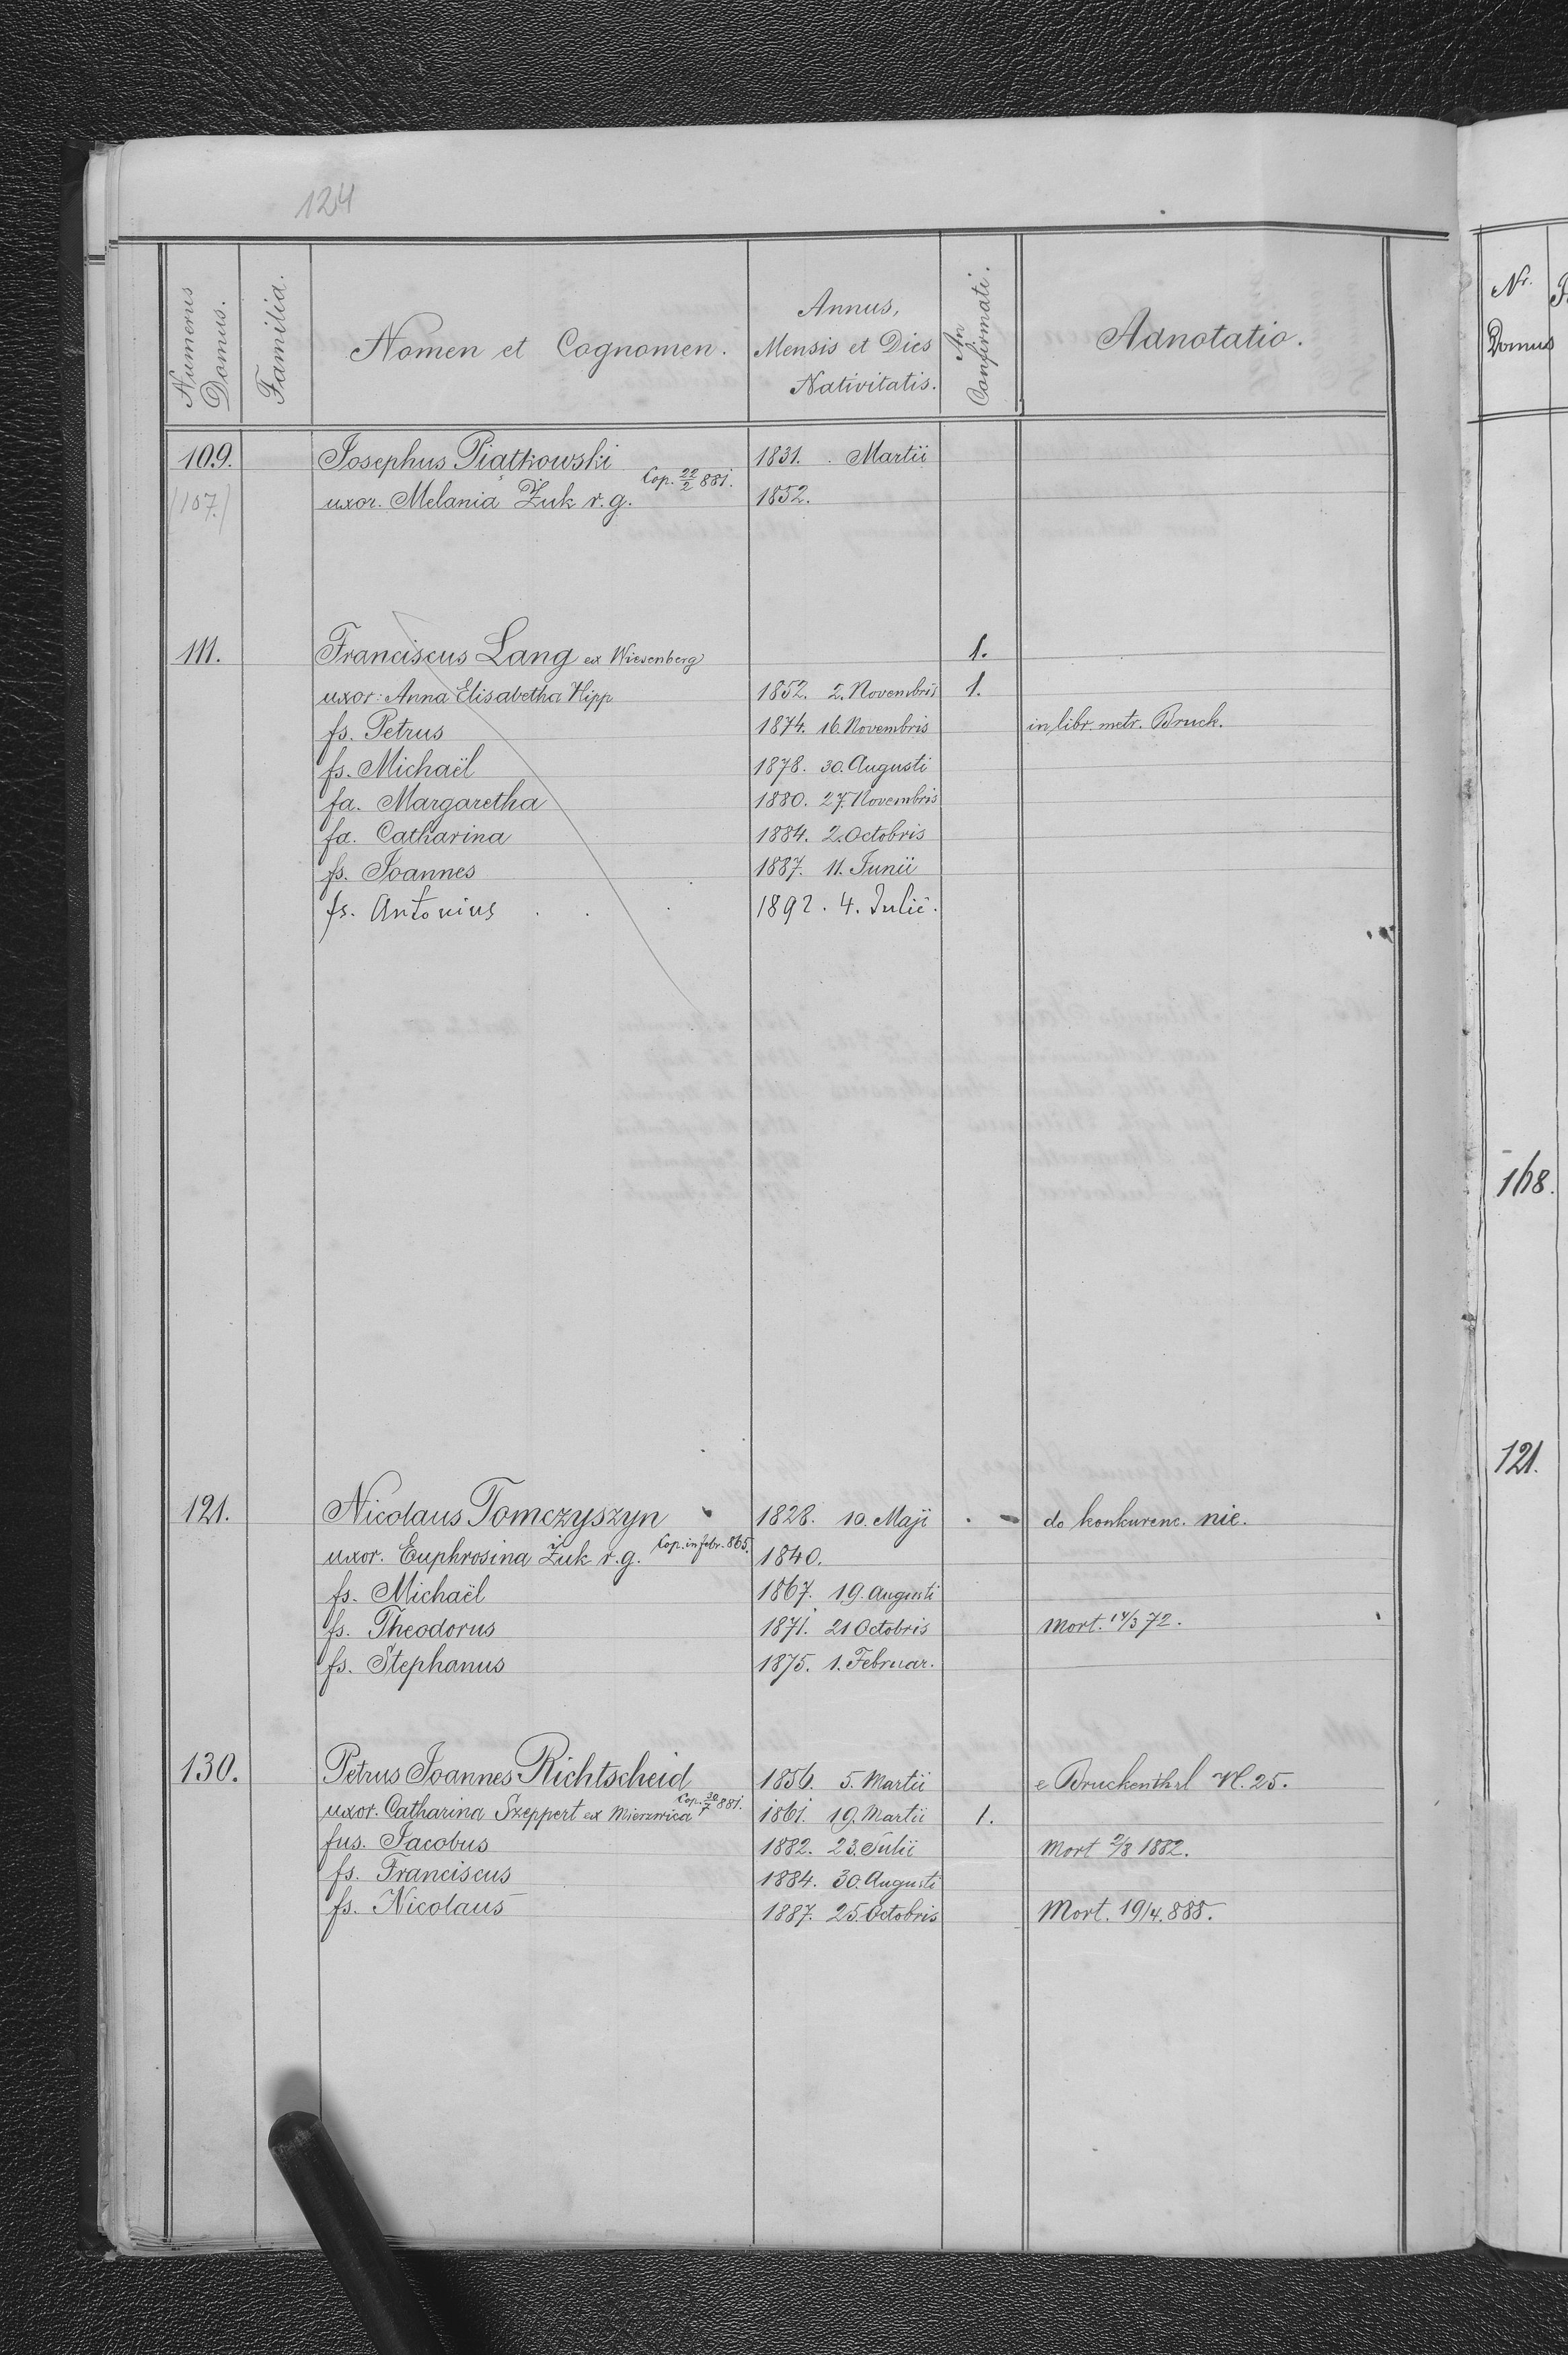 124
Numerus Domus. Familia. Nomen et Cognomen. Annus, Mensis et Dies Nativitatis. An Confirmati. Adnotatio.
109. Josephus Piątkowski 1831. . Martii
Cop. 22/2 881.
(107.) uxor. Melania Żuk r. g. 1852.
111. Franciscus Lang ex Wiesenberg 1.
uxor: Anna Elisabetha Hipp 1852. 2. Novembris 1.
fs. Petrus 1874. 16. Novembris in libr. metr. Bruck.
fs. Michaël 1878. 30. Augusti
fa. Margaretha 1880. 27. Novembris
fa. Catharina 1884. 2. Octobris
fs. Joannes 1887. 11. Junii
fs. Antonius . . . 1892. 4. Julii.
121. Nicolaus Tomczyszyn 1828. 10. Maji do konkurenc. nie.
uxor. Euphrosina Żuk r. g. Cop. in febr. 865. 1840.
fs. Michaël 1867. 19. Augusti
fs. Theodorus 1871. 21 Octobris Mort. 14/3 72.
fs. Stephanus 1875. 1. Februar.
130. Petrus Joannes Richtscheid 1856. 5. Martii e Bruckenthal N. 25.
Cop. 30/7 881.
uxor. Catharina Szeppert ex Mierzwica 1861. 19. Martii 1.
fus. Jacobus 1882. 23. Julii Mort 2/8 1882.
fs. Franciscus 1884. 30. Augusti
fs. Nicolaus 1887. 25. Octobris Mort. 19/4. 888.
Nr. Domus
118.
121.